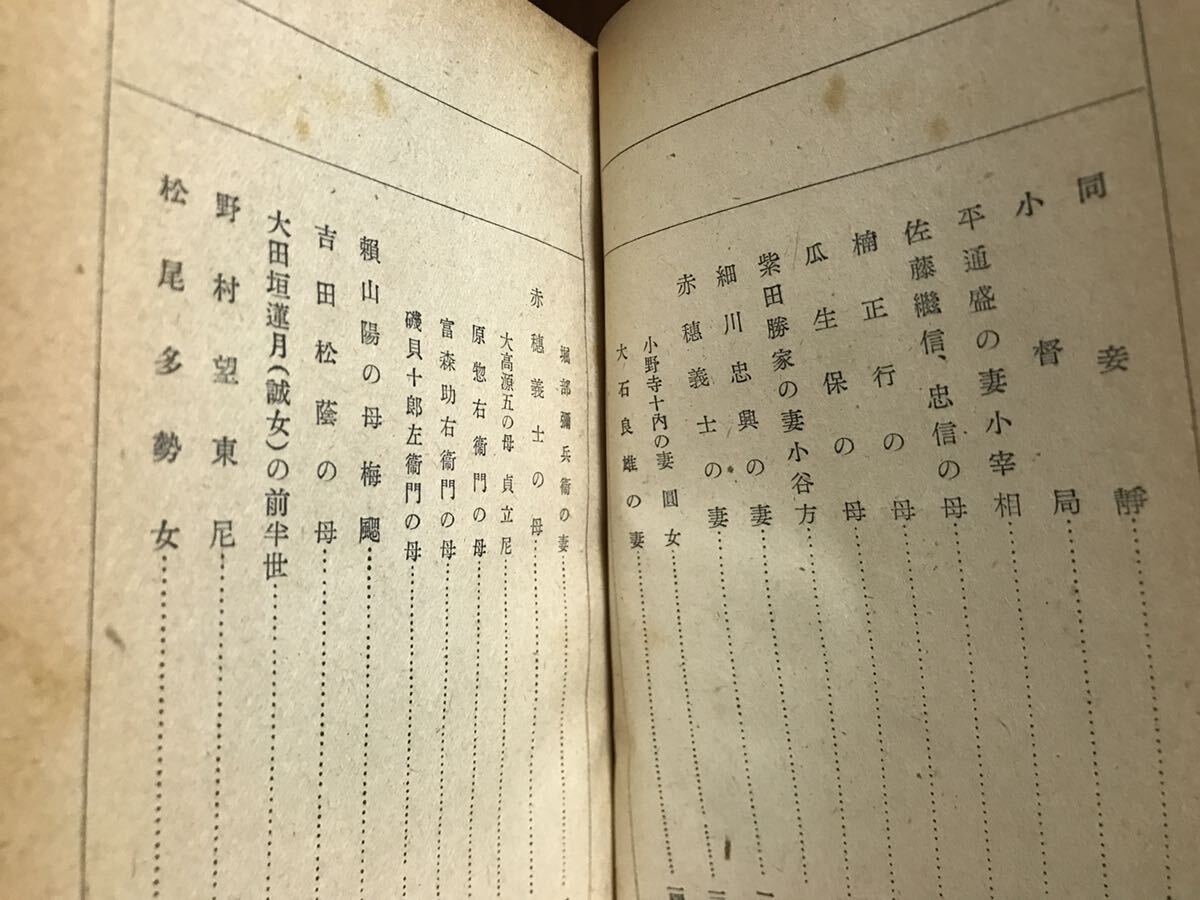 同妾靜
小督局
平通盛の妻小宰相
佐藤繼信、忠信の母
楠正行の母
瓜生保の母
柴田勝家の妻小谷方
細川忠興の妻
赤穗義士の妻
小野寺十內の妻 圓女
大石良雄の妻
堀部彌兵衞の妻
赤穗義士の母
大高源五の母 貞立尼
原惣右衞門の母
富森助右衞門の母
磯貝十郎左衞門の母
賴山陽の母梅颸
吉田松蔭の母
大田垣蓮月(誠女)の前半世
野村望東尼
松尾多勢女